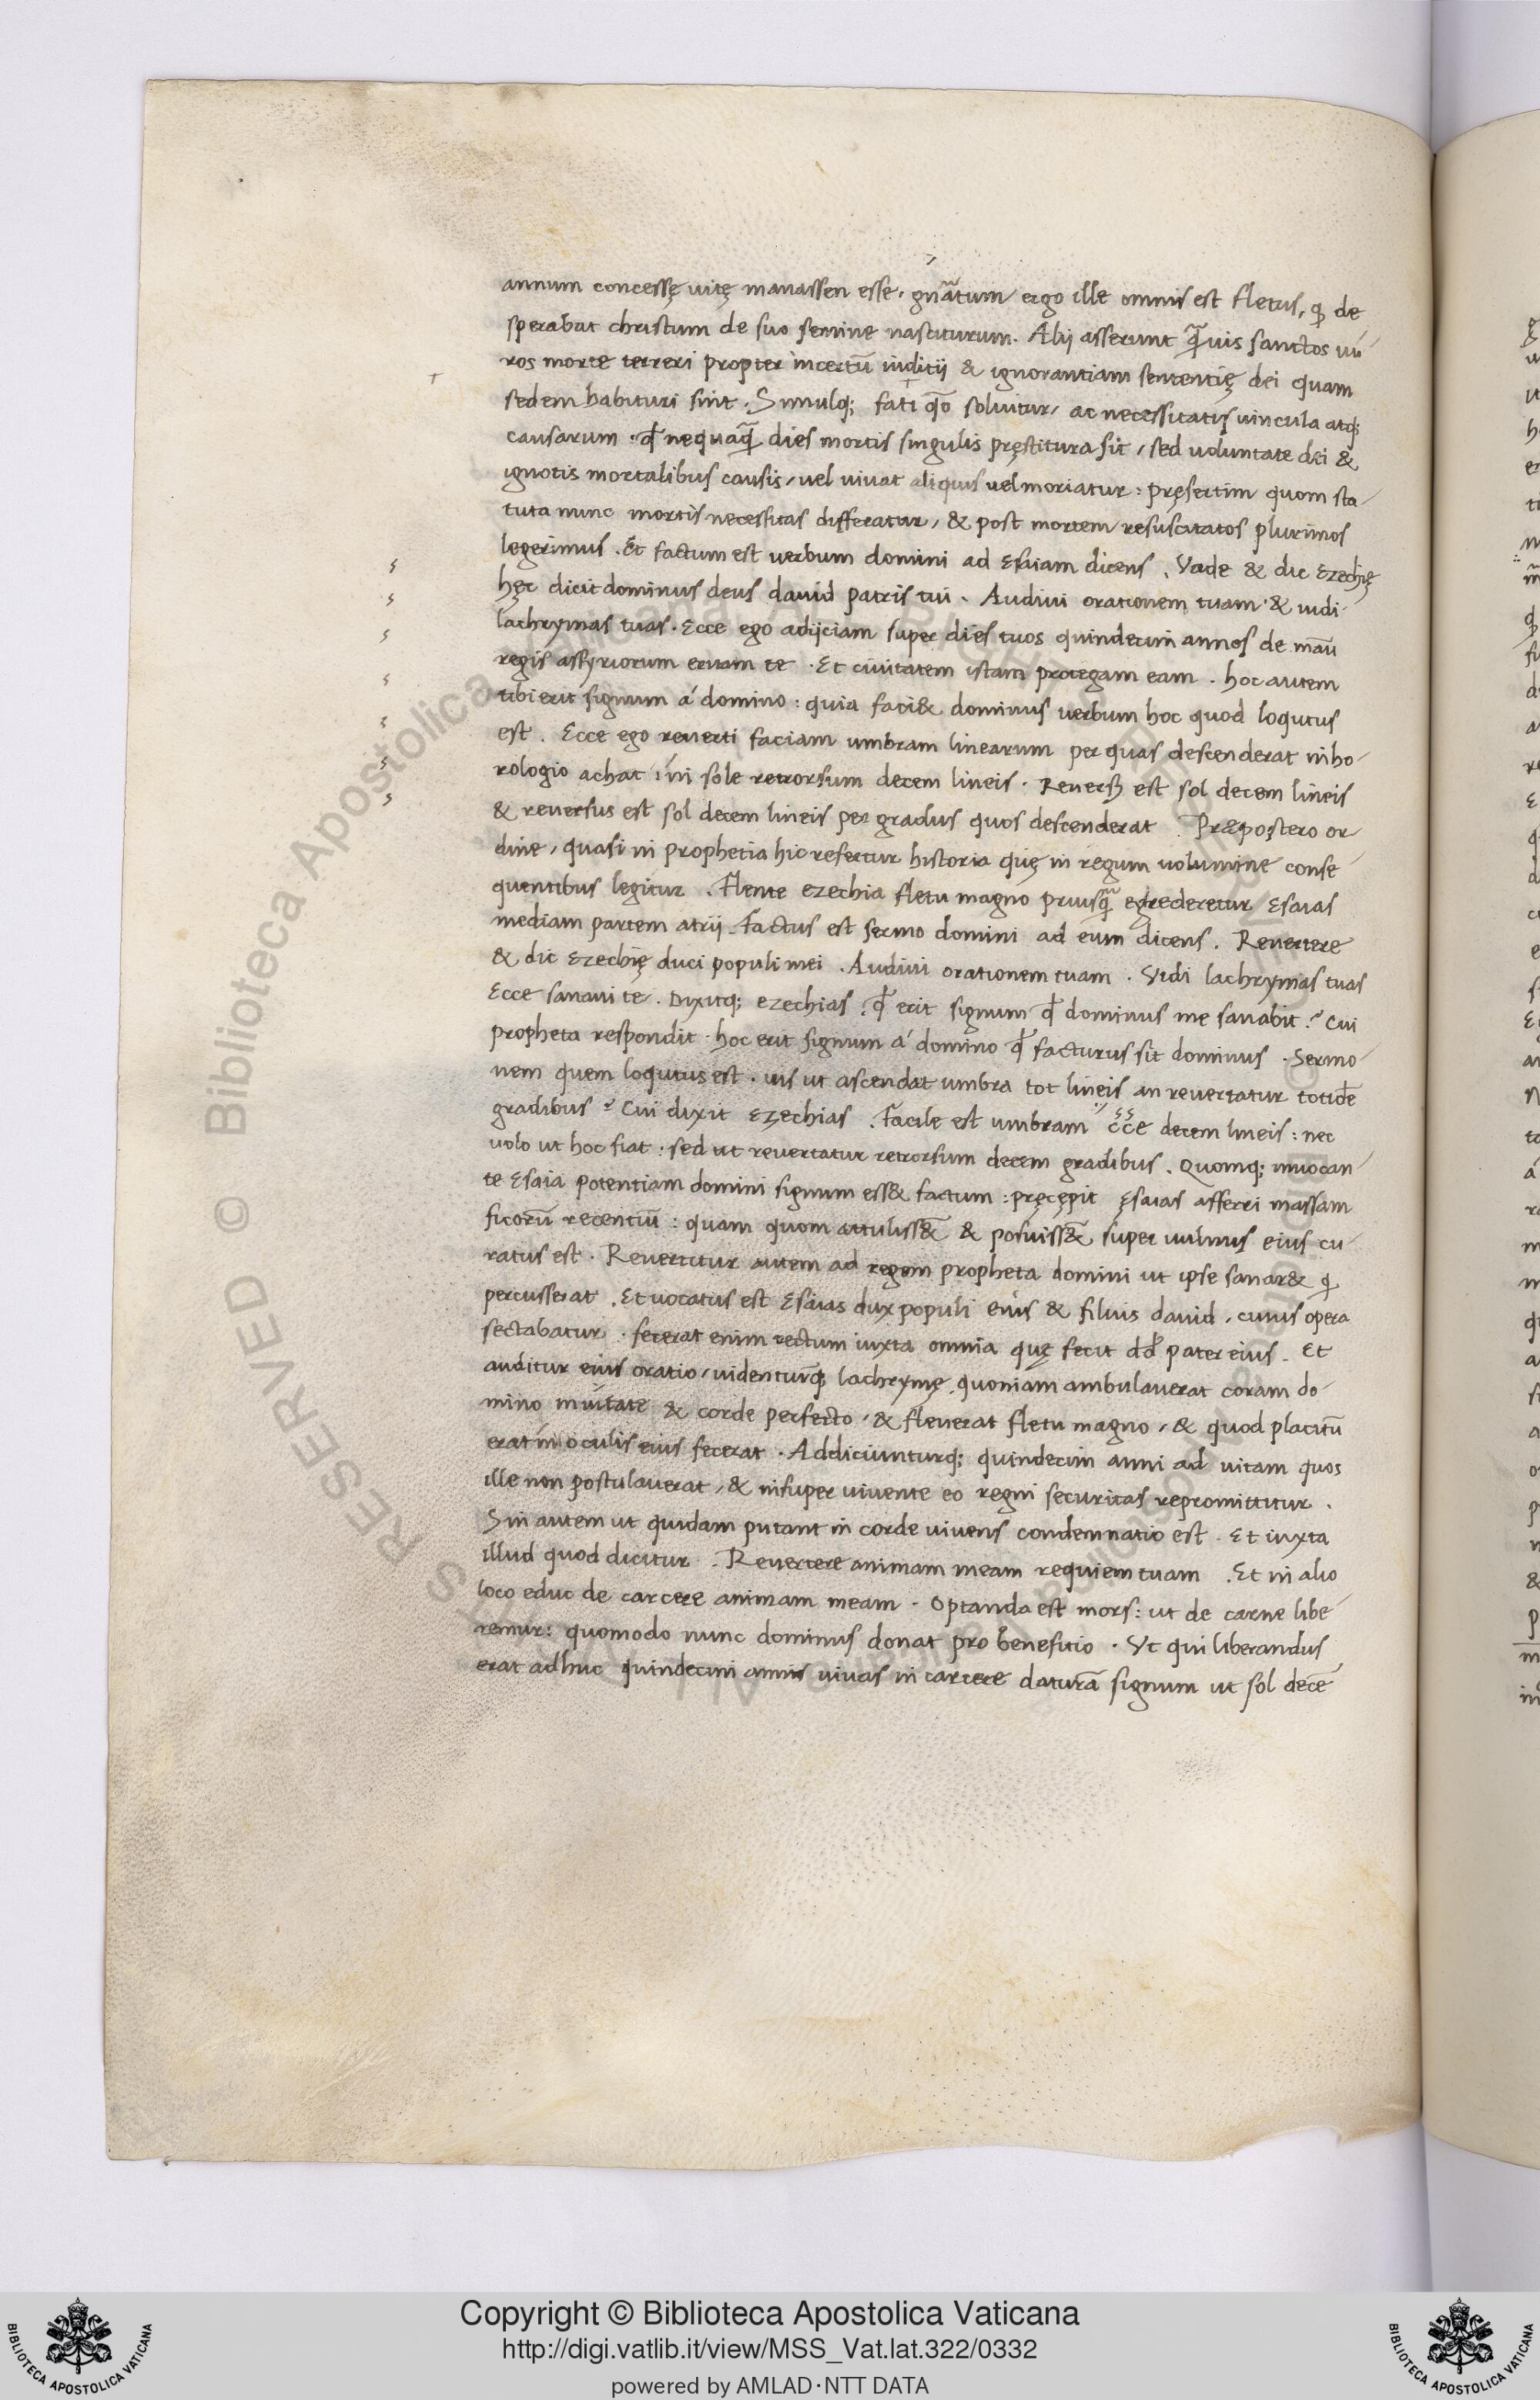 annum concessę uitę manassen esse, gnãtum ergo ille omnis est fletus, q̃ de
sperabat christum de suo semine nasciturum. Alij asserunt q̃uis sanctos ui-
ros morte terreri propter incertũ iuditij & ignorantiam sententię dei quam
sedem habituri sint. Simulq; fati q̃o soluitur, ac necessitatis uincula atq;
causarum. qđ nequaq̃ dies mortis singulis pręstitura sit, sed uoluntate dei &
ignotis mortalibus causis, uel uiuat aliquis uel moriatur: pręsertim quom sta-
tuta nunc mortis necessitas differatur, & post mortem resuscitatos plurimos
legerimus. Et factum est uerbum domini ad Esaiam dicens. Vade & dic Ezechię
hęc dicit dominus deus dauid patris tui. Audiui orationem tuam & uidi
lachrymas tuas. Ecce ego adijciam super dies tuos quindecim annos de mãu
regis assyriorum eruam te. Et ciuitatem istam protegam eam. hoc autem
tibi erit signum á domino: quia faci& dominus uerbum hoc quod loqutus
est. Ecce ego reuerti faciam umbram linearum per quas descenderat in ho-
rologio achat in sole retrorsum decem lineis. Reuersꝫ est sol decem lineis
& reuersus est sol decem lineis per gradus quos descenderat. Præpostero or-
dine, quasi in prophetia hic refertur historia quę in regum uolumine conse
quentibus legitur. Flente ezechia fletu magno priusq̃ egrederetur Esaias
mediam partem atrij. Factus est sermo domini ad eum dicens. Reuertere
& dic Ezechię duci populi mei. Audiui orationem tuam. Vidi lachrymas tuas
Ecce sanaui te. Dixitq; ezechias. qđ erit signum qđ dominus me sanabit? Cui
propheta respondit. hoc erit signum á domino qđ facturus sit dominus. Sermo-
nem quem loqutus est. uis ut ascendat umbra tot lineis an reuertatur totidẽ
gradibus? Cui dixit Ezechias. Facile est umbram decem lineis: nec
uolo ut hoc fiat: sed ut reuertatur retrorsum decem gradibus. Quomq; inuocan-
te Esaia potentiam domini signum ess& factum: pręcępit Ęsaias afferri massam
ficorũ recentiũ: quam quom attuliss&̃ & posuiss&̃ super uulnus eius cu-
ratus est. Reuertitur autem ad regem propheta domini ut ipse sanar& q̃
percusserat. Et uocatus est Esaias dux populi eius & filius dauid, cuius opera
sectabatur. fecerat enim rectum iuxta omnia quę fecit dđ pater eius. Et
auditur eius oratio, uidenturq̃ lachrymę, quoniam ambulauerat coram do-
mino & corde perfecto, & fleuerat fletu magno, & quod placitũ
erat in oculis eius fecerat. Addiciunturq; quindecim anni ad uitam quos
ille non postulauerat, & insuper uiuente eo regni securitas repromittitur.
Sin autem ut quidam putant in corde uiuens condemnatio est. Et iuxta
illud quod dicitur. Reuertere animam meam requiem tuam. Et in alio
loco educ de carcere animam meam. Optanda est mors: ut de carne libe-
remur: quomodo nunc dominus donat pro benefitio. Vt qui liberandus
erat adhuc quindecim annis uiuas in carcere daturã signum ut sol decẽ
Copyright © Biblioteca Apostolica Vaticana
http://digi.vatlib.it/view/MSS_Vat.lat.322/0332
powered by AMLAD·NTT DATA
BIBLIOTECA APOSTOLICA VATICANA
BIBLIOTECA APOSTOLICA VATICANA